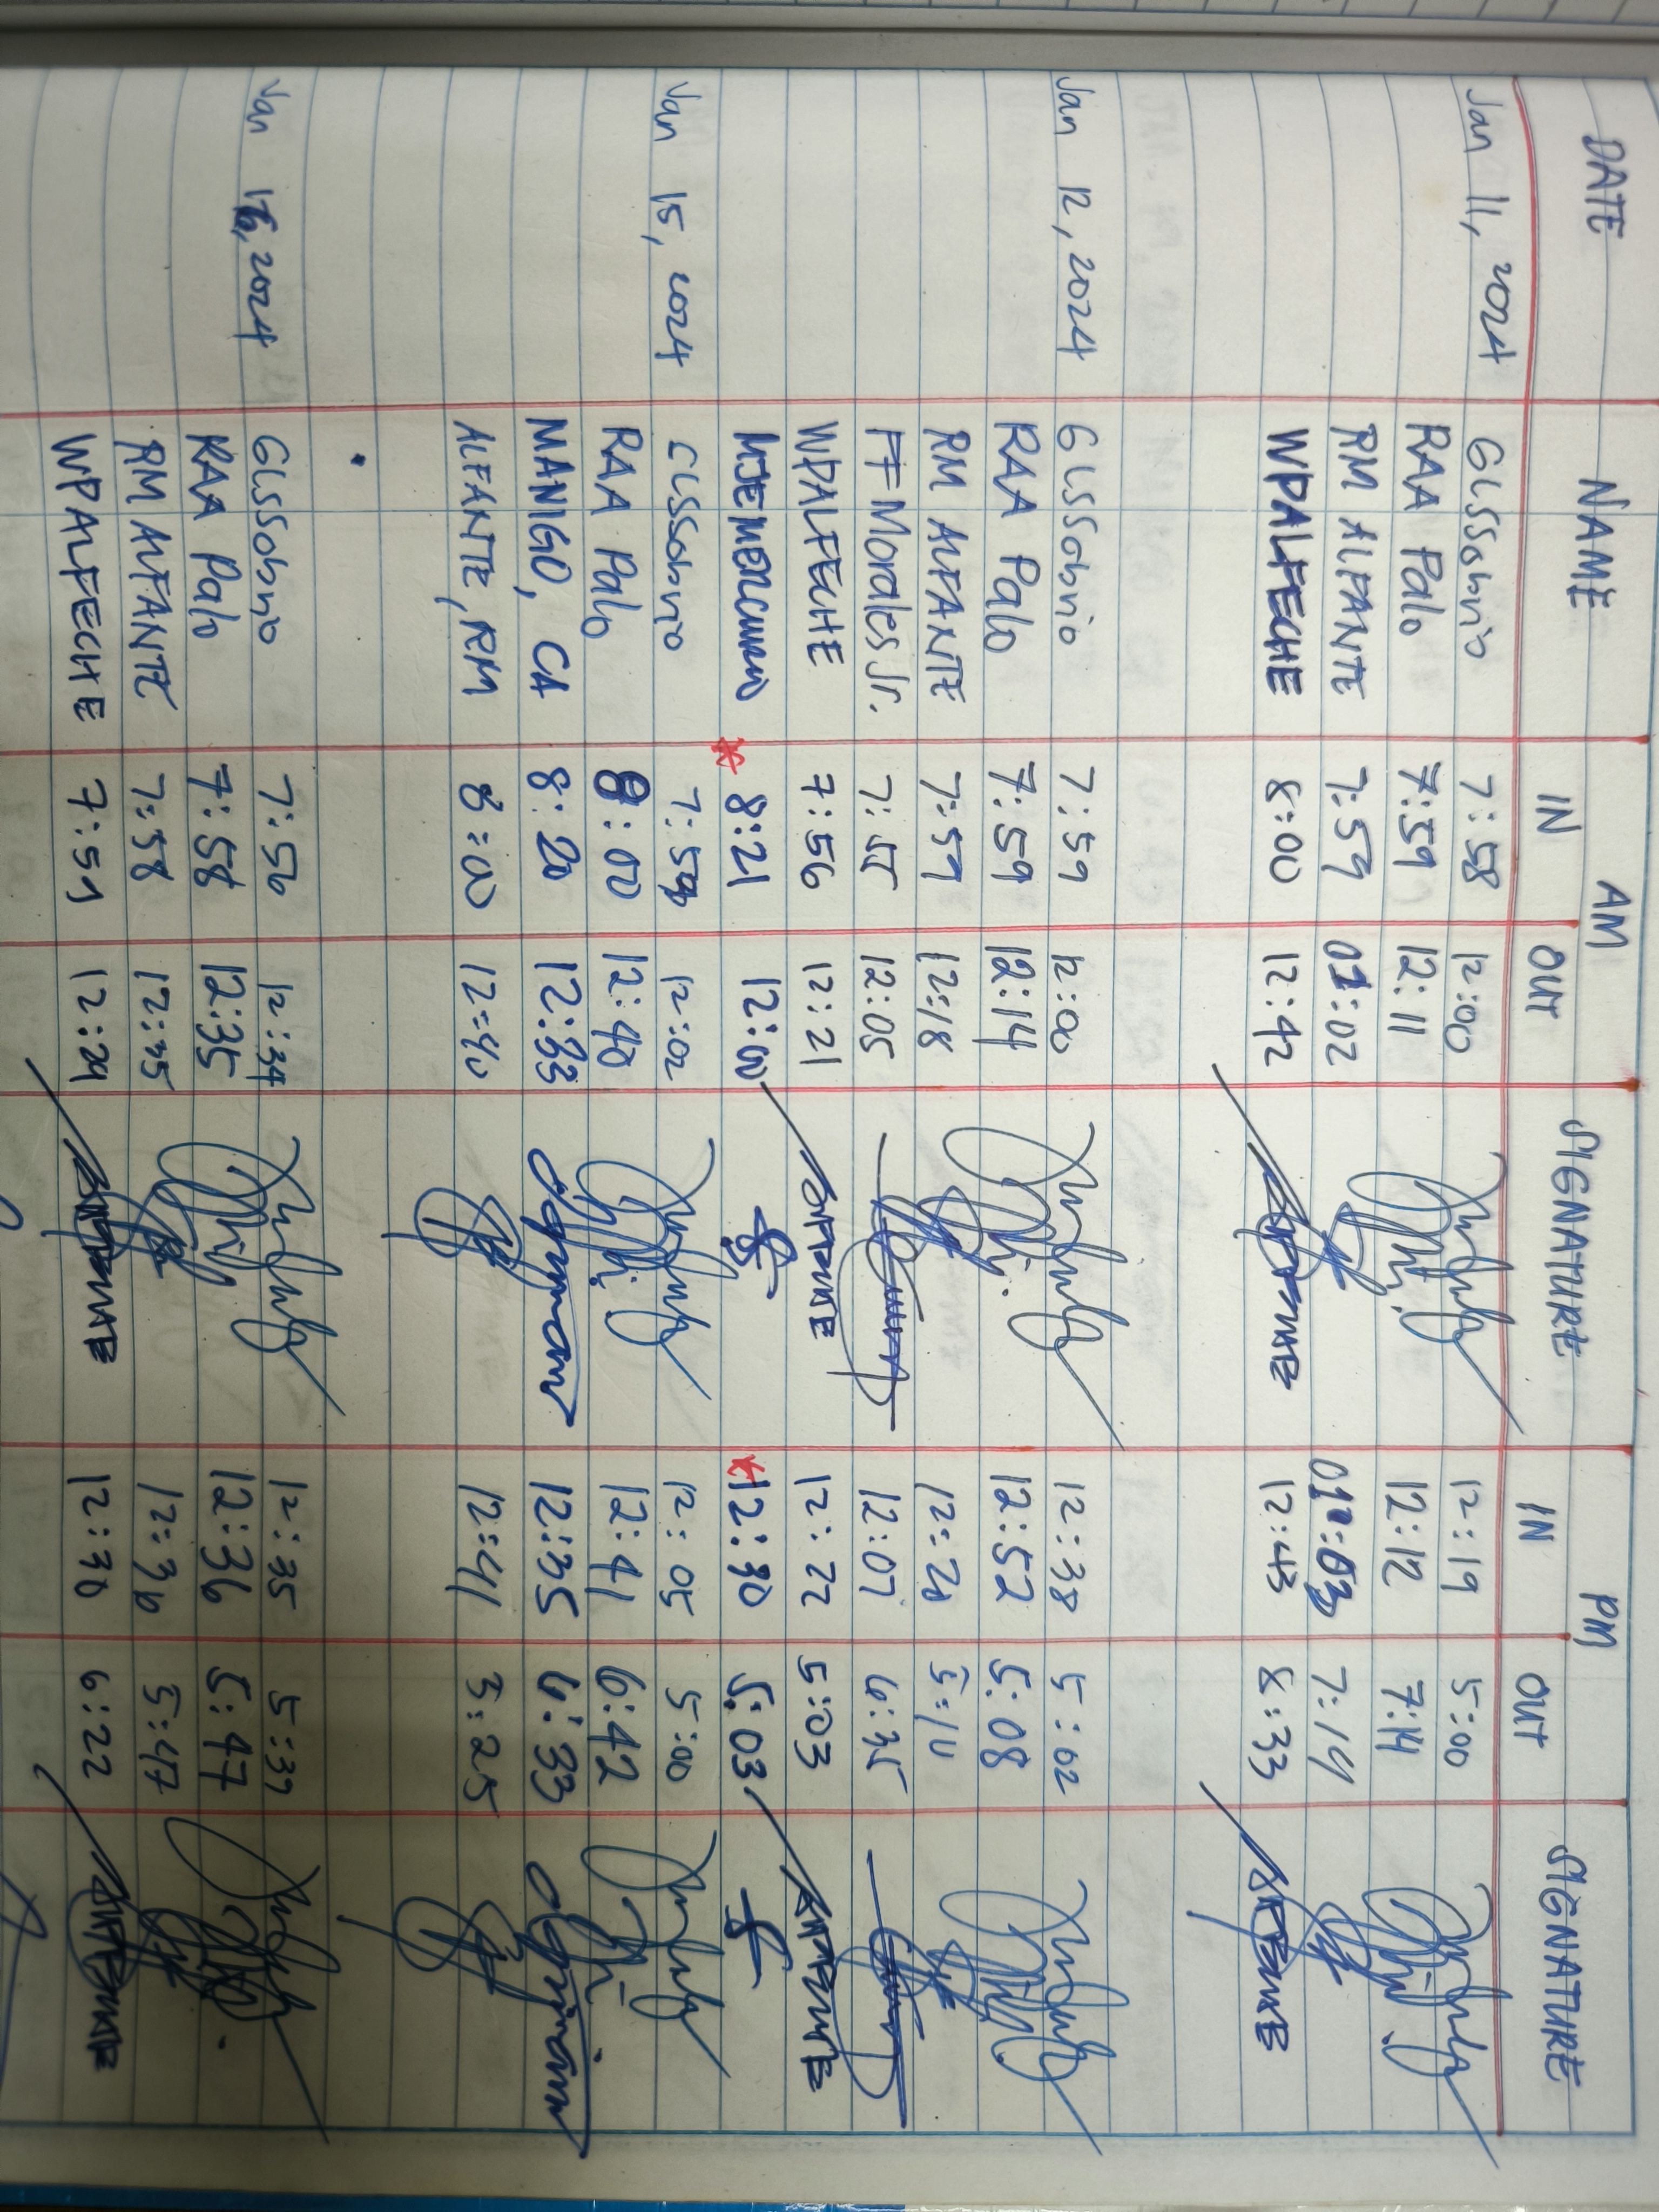 DATE NAME AM SIGNATURE PM SIGNATURE
IN OUT IN OUT
Jan 11, 2024 GLSSobrio 7:58 12:00 12:19 5:00
RAA Palo 7:59 12:11 12:12 7:14
RM ALFANTE 7:59 01:02 01:03 7:14
WPALFECHE 8:00 12:42 12:43 8:33
Jan 12, 2024 GLSSobrio 7:59 12:00 12:38 5:02
RAA Palo 7:59 12:14 12:52 5:08
RM ALFANTE 7:59 12:18 12:20
FF Morales Jr. 7:55 12:05 12:07 6:35
WPALFECHE 7:56 12:21 12:22 5:03
* 8:21 12:00 *12:30 5:03
Jan 15, 2024 GLSSobrio 12:02 12:05 5:00
RAA Palo 8:00 12:40 12:41 6:42
MANIGO, CA 8:20 12:33 12:35 6:33
ALFANTE, RM 8:00 12:40 12:41 5:25
Jan 16, 2024 GLSSobrio 12:34 12:35
RAA Palo 7:58 12:35 12:36 5:47
RM ALFANTE 7:58 12:35 12:36 5:47
WPALFECHE 7:59 12:29 12:30 6:22